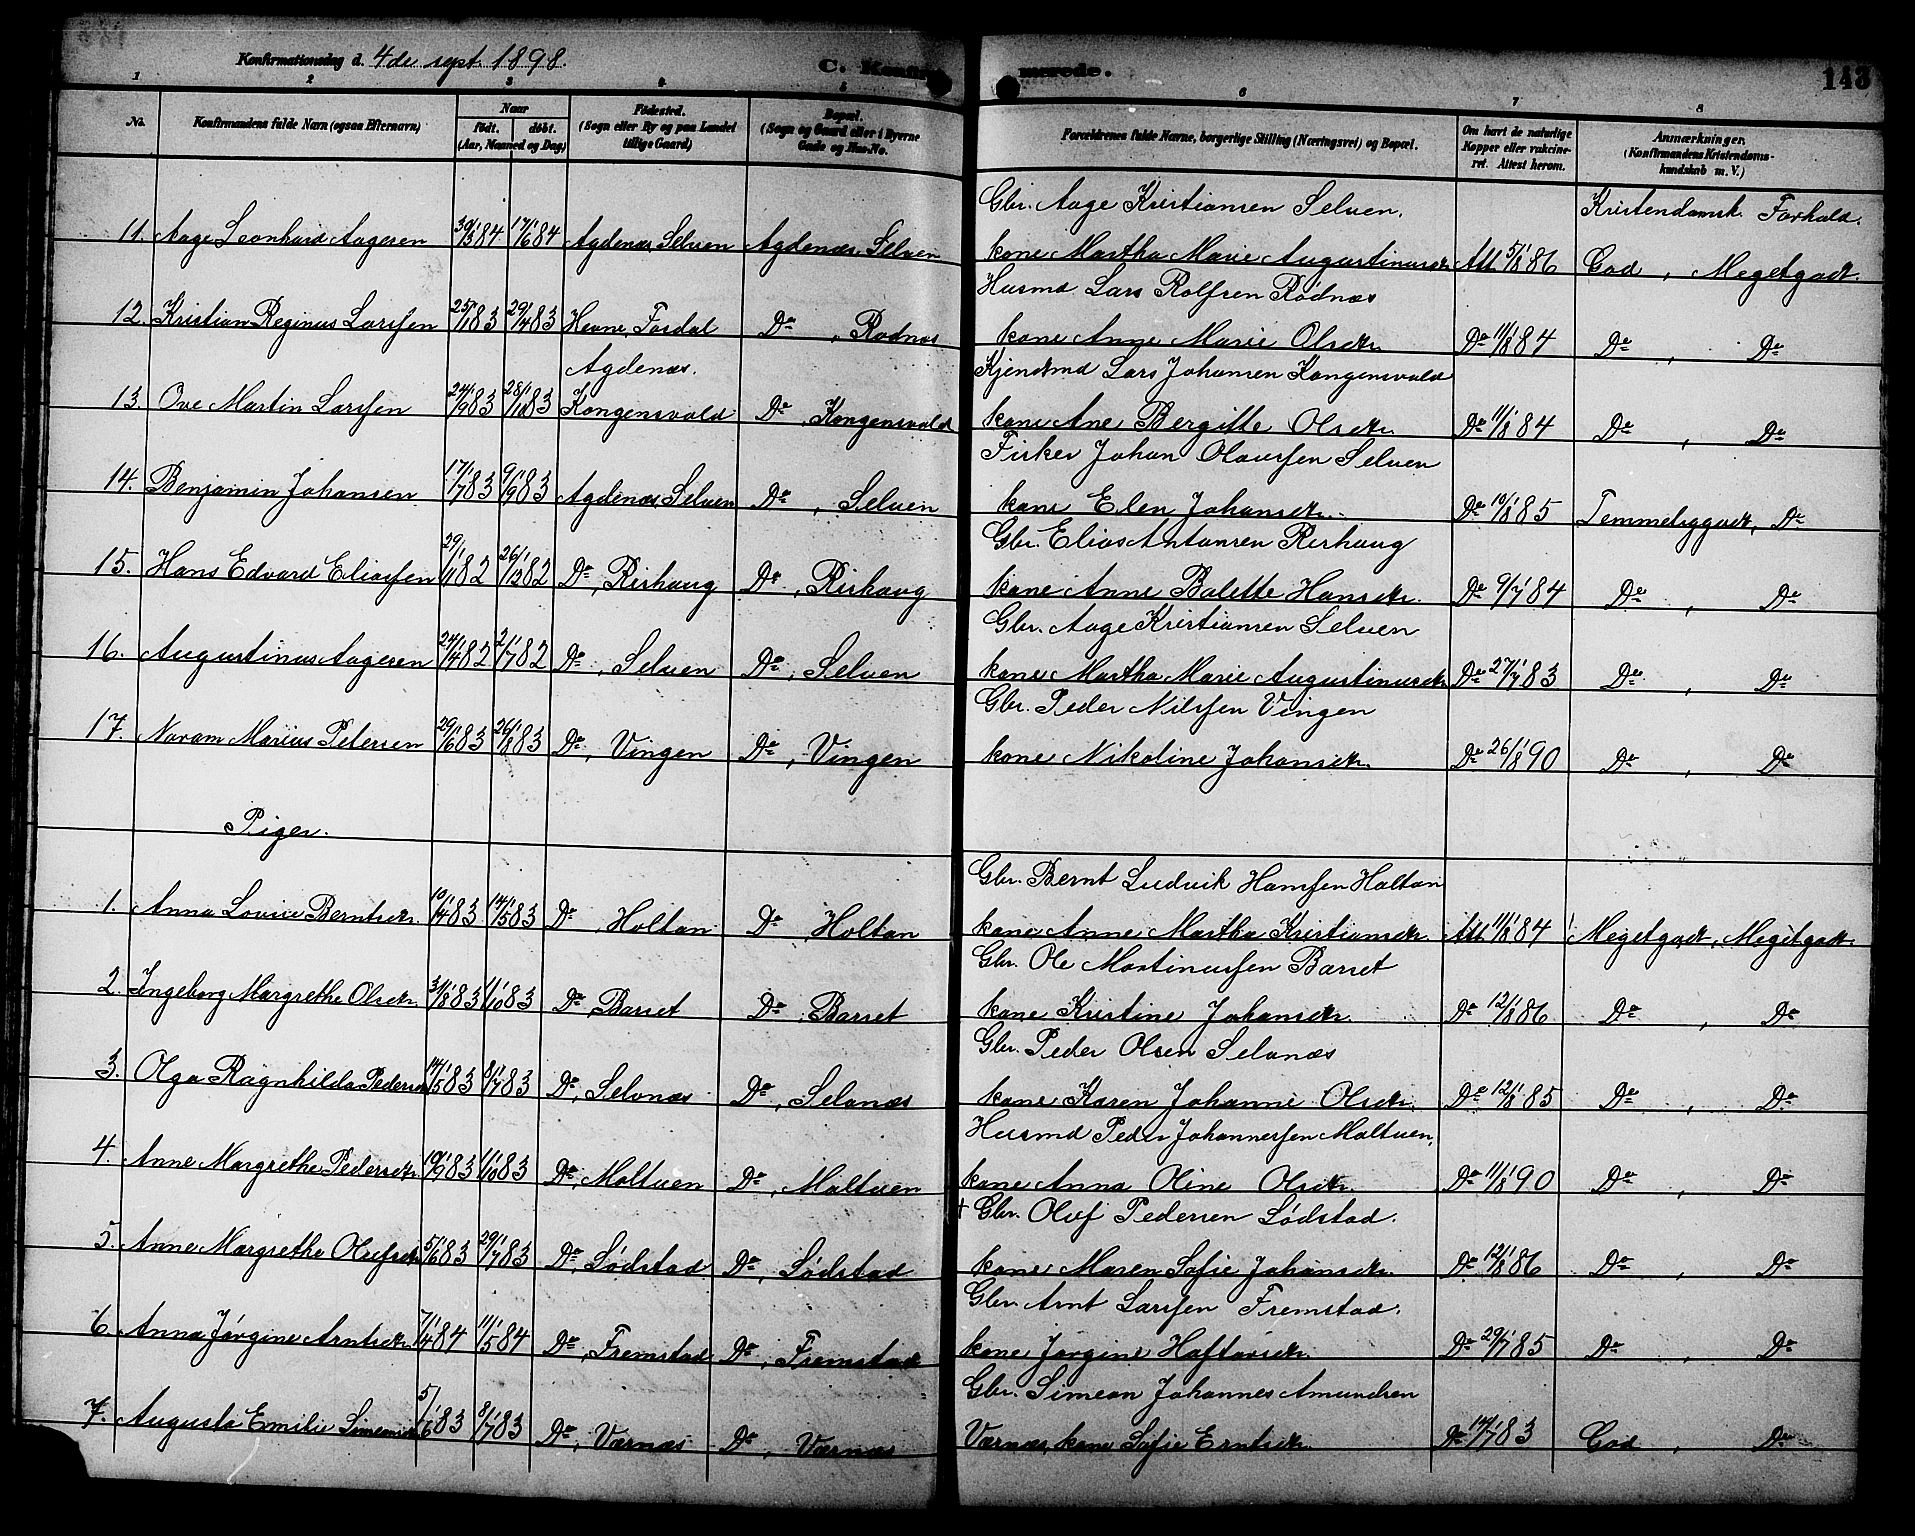 Konfirmationsdag d. 4de sept. 1898. C. Konfirmerede. 143
1 2 3 4 5 6 7 8
No. Konfirmandens fulde Navn (ogsaa Efternavn) Naar født. døbt. (Aar, Maaned og Dag) Fødested. (Sogn eller By og paa Landet tillige Gaard) Bopæl. (Sogn og Gaard eller i Byerne Gade og Hus-No. Forældrenes fulde Navne, borgerlige Stilling (Næringsvei) og Bopæl. Om havt de naturlige Kopper eller vakcineret. Attest herom. Anmærkninger. (Konfirmandens Kristendomskundskab m. V.)
Gbr. Aage Kristiansen Selven. Kristendomsk. Forhold.
11. Aage Leonhard Aagesen 30/3 84 17/6 84 Agdenæs, Selven Agdenæs, Selven kone Martha Marie Augustinusdtr. Att. 5/8 86 God, Megetgodt.
Husmd. Lars Rolfsen Rødnæs
12. Kristian Reginus Larssen 25/1 83 29/4 83 Hevne, Fordal Do, Rødnæs kone Anne Marie Olsdtr. Do 11/8 84 Do, Do
Agdenæs. Lars Johansen Kongensvold
13. Ove Martin Larssen 24/9 83 28/10 83 Kongensvold Do, Kongensvold kone Ane Bergitte Olsdtr. Do 11/8 84 Do, Do
Fisker Johan Olaussen Selven
14. Benjamin Johansen 17/7 83 9/9 83 Agdenæs, Selven Do, Selven kone Elen Johansdtr. Do 10/8 85 Temmeliggodt, Do
Gbr. Elias Antonsen Rishaug
15. Hans Edvard Eliassen 29/11 82 26/12 82 Do, Rishaug Do, Rishaug kone Anne Bolette Hansdtr. Do 9/7 84 Do, Do
Gbr. Aage Kristiansen Selven
16. Augustinus Aagesen 24/4 82 2/7 82 Do, Selven Do, Selven kone Martha Marie Augustinusdtr. Do 27/7 83 Do, Do
Gbr. Peder Nilssen Vingen
17. Marius Petersen 29/6 83 26/8 83 Do, Vingen Do, Vingen kone Nikoline Johansdtr. Do 26/8 90 Do, Do
Piger.
Gbr. Bernt Ludvik Hanssen Holtan
1. Anna Lovise Berntsdtr. 10/4 83 14/5 83 Do Holtan Do, Holtan kone Anne Martha Kristiansdtr. Att. 11/8 84 Megetgodt, Megetgodt.
Gbr. Ole Martinussen Barset
2. Ingeborg Margrethe Olsdtr. 31/8 83 1/10 83 Do, Barset Do, Barset kone Kristine Johansdtr. Do 12/8 86 Do, Do
Gbr. Peder Olsen Selvnæs
3. Olga Ragnhilda 14/5 83 8/7 83 Do, Selvnæs Do, Selvnæs kone Karen Johanne Olsdtr. Do 12/8 85 Do, Do
Husmd Peder Johannessen Moltuen,
4. Anne Margrethe Pedersdtr. 10/9 83 1/10 83 Do, Moltuen Do, Moltuen kone Anna Oline Olsdtr. Do 11/8 90 Do, Do
† Gbr. Oluf Pedersen Lødstad.
5. Anne Margrethe Olufsdtr 5/6 83 29/7 83 Do, Lødstad Do, Lødstad kone Maren Sofie Johansdtr. Do 12/8 86 Do, Do
Gbr. Arnt Larssen Fremstad.
6. Anna Jørgine Arntsdtr. 7/4 84 11/5 84 Do, Fremstad Do, Fremstad kone Jørgine Haftorsdtr. Do 29/7 85 Do, Do
Gbr. Simeon Johannes Amundsen
7. Augusta Emilie 5/6 83 8/7 83 Do, Værnæs Do, Værnæs Værnæs, kone Sofie Erntsdtr. Do 14/7 83 God, Do